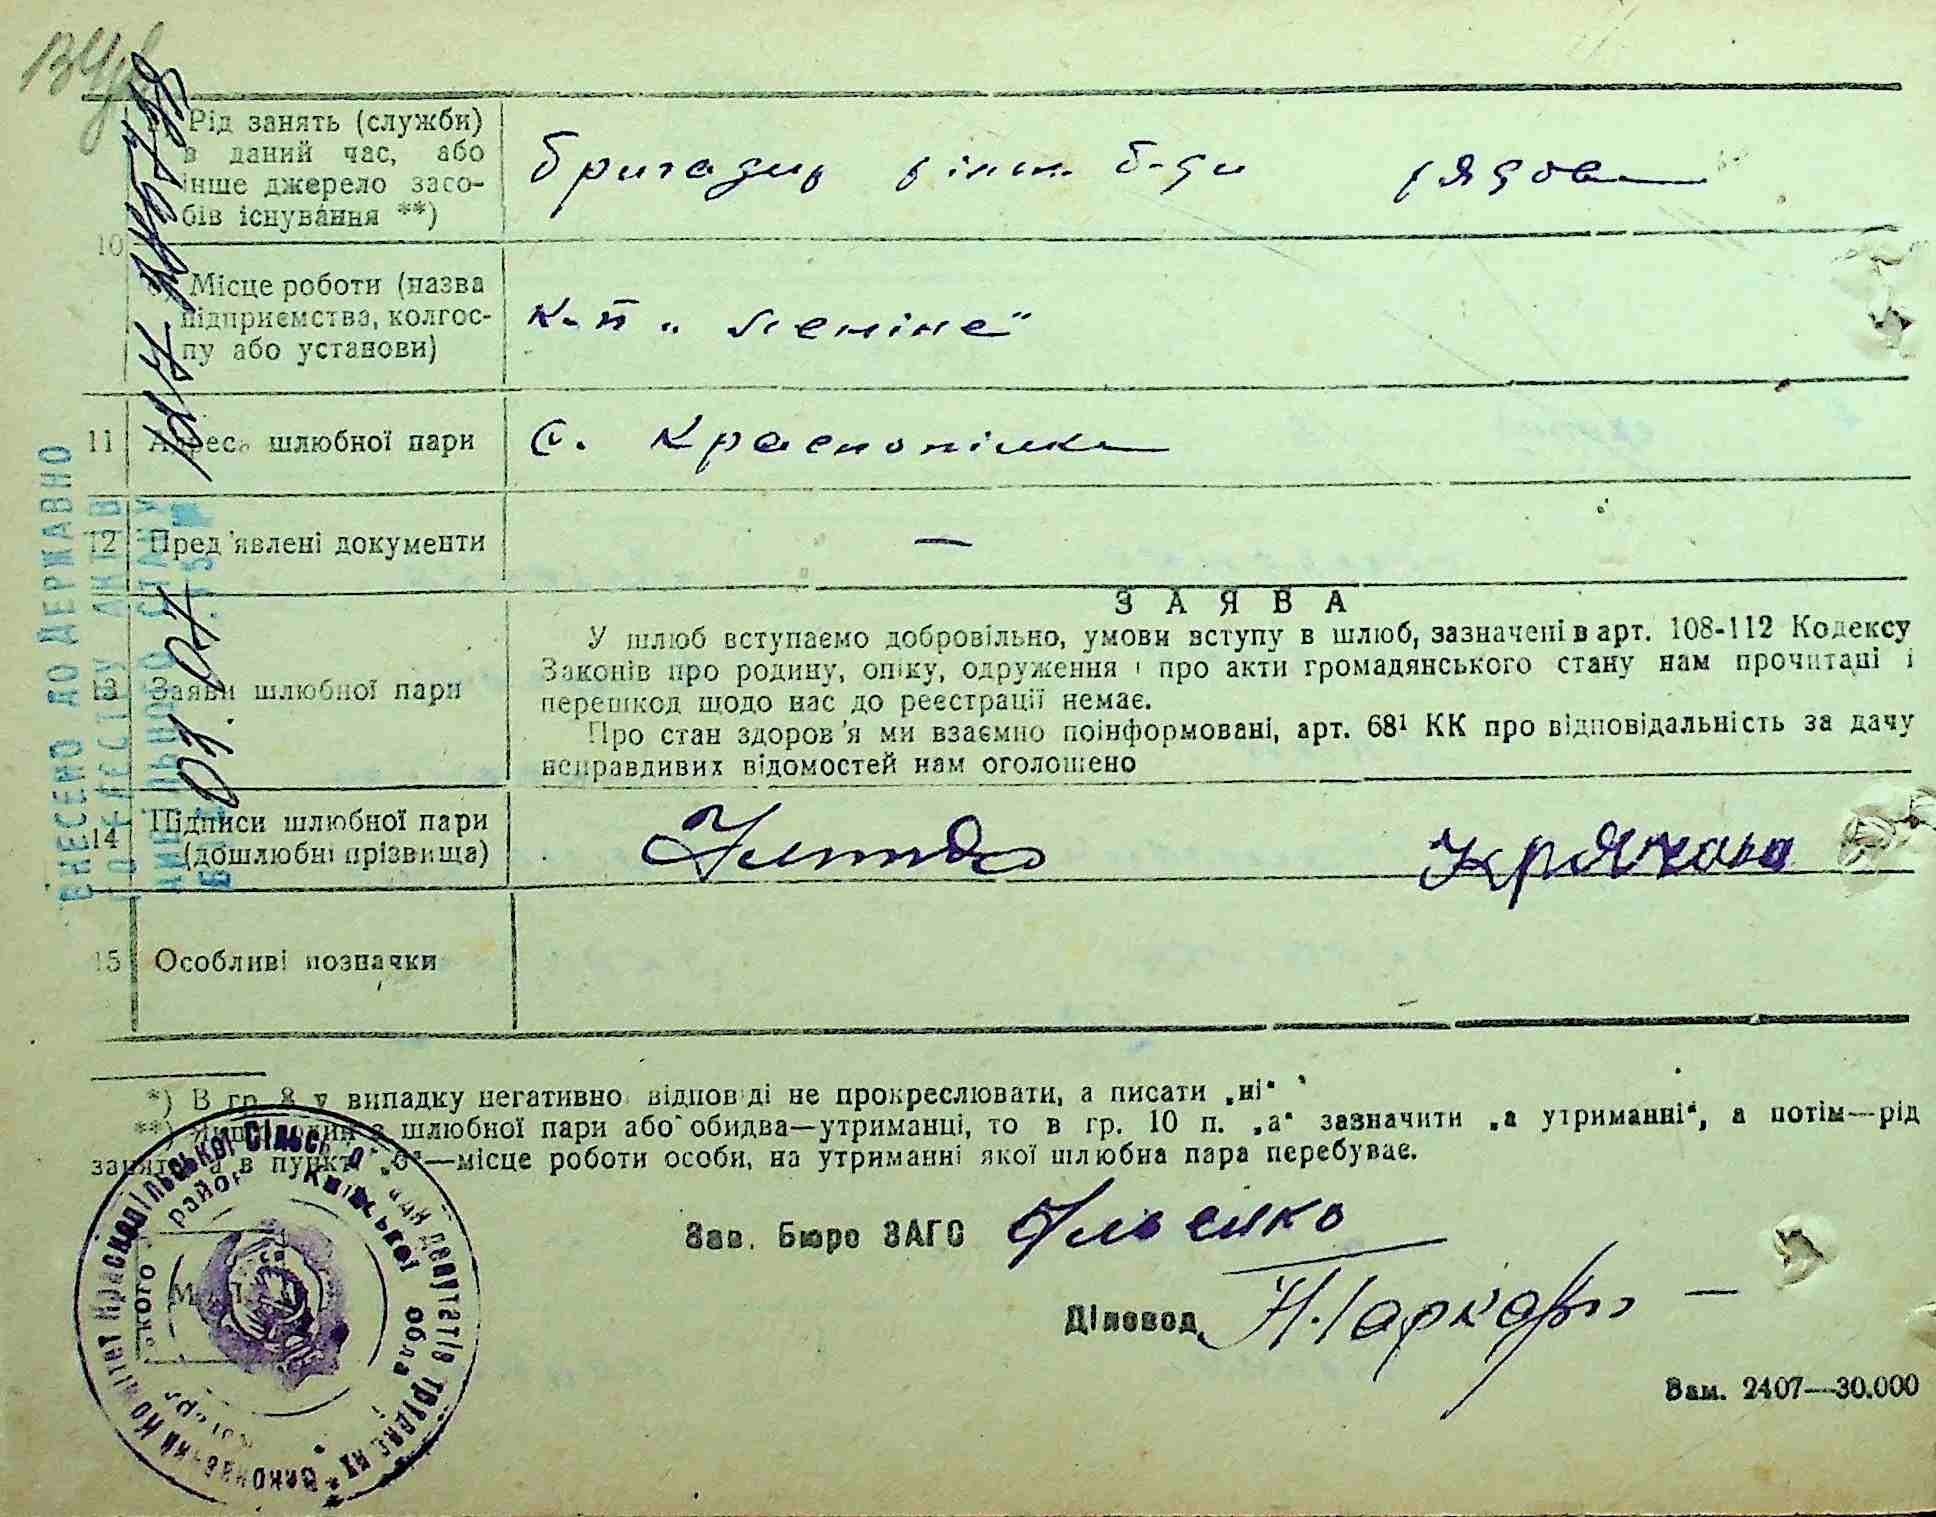 Рід занять (служби)
в даний час, або
інше джерело засо-
бів існування **)
Бригадир рільн. б-ди рядова
10
Місце роботи (назва
підприємства, колгос-
пу або установи)
к-п „Леніна"
11 Адреса шлюбної пари
с. Краснопілка
12 Пред'явлені документи
—
ЗАЯВА
13 Заяви шлюбної пари
У шлюб вступаємо добровільно, умови вступу в шлюб, зазначені в арт. 108-112 Кодексу
Законів про родину, опіку, одруження і про акти громадянського стану нам прочитані і
перешкод щодо нас до реєстрації немає.
Про стан здоров'я ми взаємно поінформовані, арт. 68¹ КК про відповідальність за дачу
неправдивих відомостей нам оголошено
14 Підписи шлюбної пари
(дошлюбні прізвища)
Крячова
15 Особливі позначки
*) В гр. 8 у випадку негативно відповіді не прокреслювати, а писати „ні"
**) Якщо один з шлюбної пари або обидва—утриманці, то в гр. 10 п. „а" зазначити „а утриманні", а потім—рід
занять, а в пункті „б"—місце роботи особи, на утриманні якої шлюбна пара перебуває.
Зав. Бюро ЗАГС
Діловод
М. П.
Зам. 2407—30.000
ВНЕСЕНО ДО ДЕРЖАВНО
ГО РЕЄСТРУ АКТІВ
ЦИВІЛЬНОГО СТАНУ
Виконавчий Комітет Краснопільської сільської Ради депутатів трудящих
району Київської обла